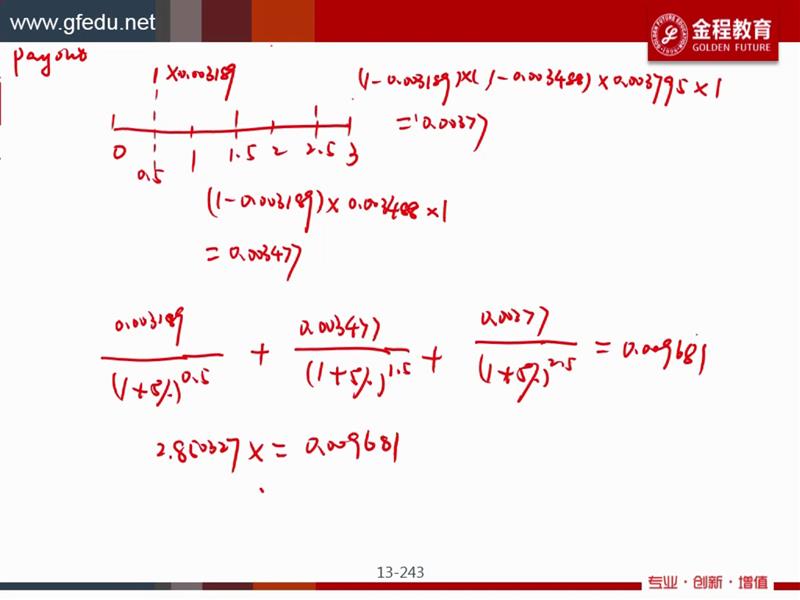 www.gfedu.net
金程教育
GOLDEN FUTURE
payout
1 × 0.003189
(1-0.003189)×(1-0.003488)×0.003795×1
=0.00377
0 0.5 1 1.5 2 2.5 3
(1-0.003189)×0.003488×1
=0.003477
0.003189/(1+5%)^0.5 + 0.003477/(1+5%)^1.5 + 0.00377/(1+5%)^2.5 = 0.009681
2.850327x = 0.009681
13-243
专业·创新·增值